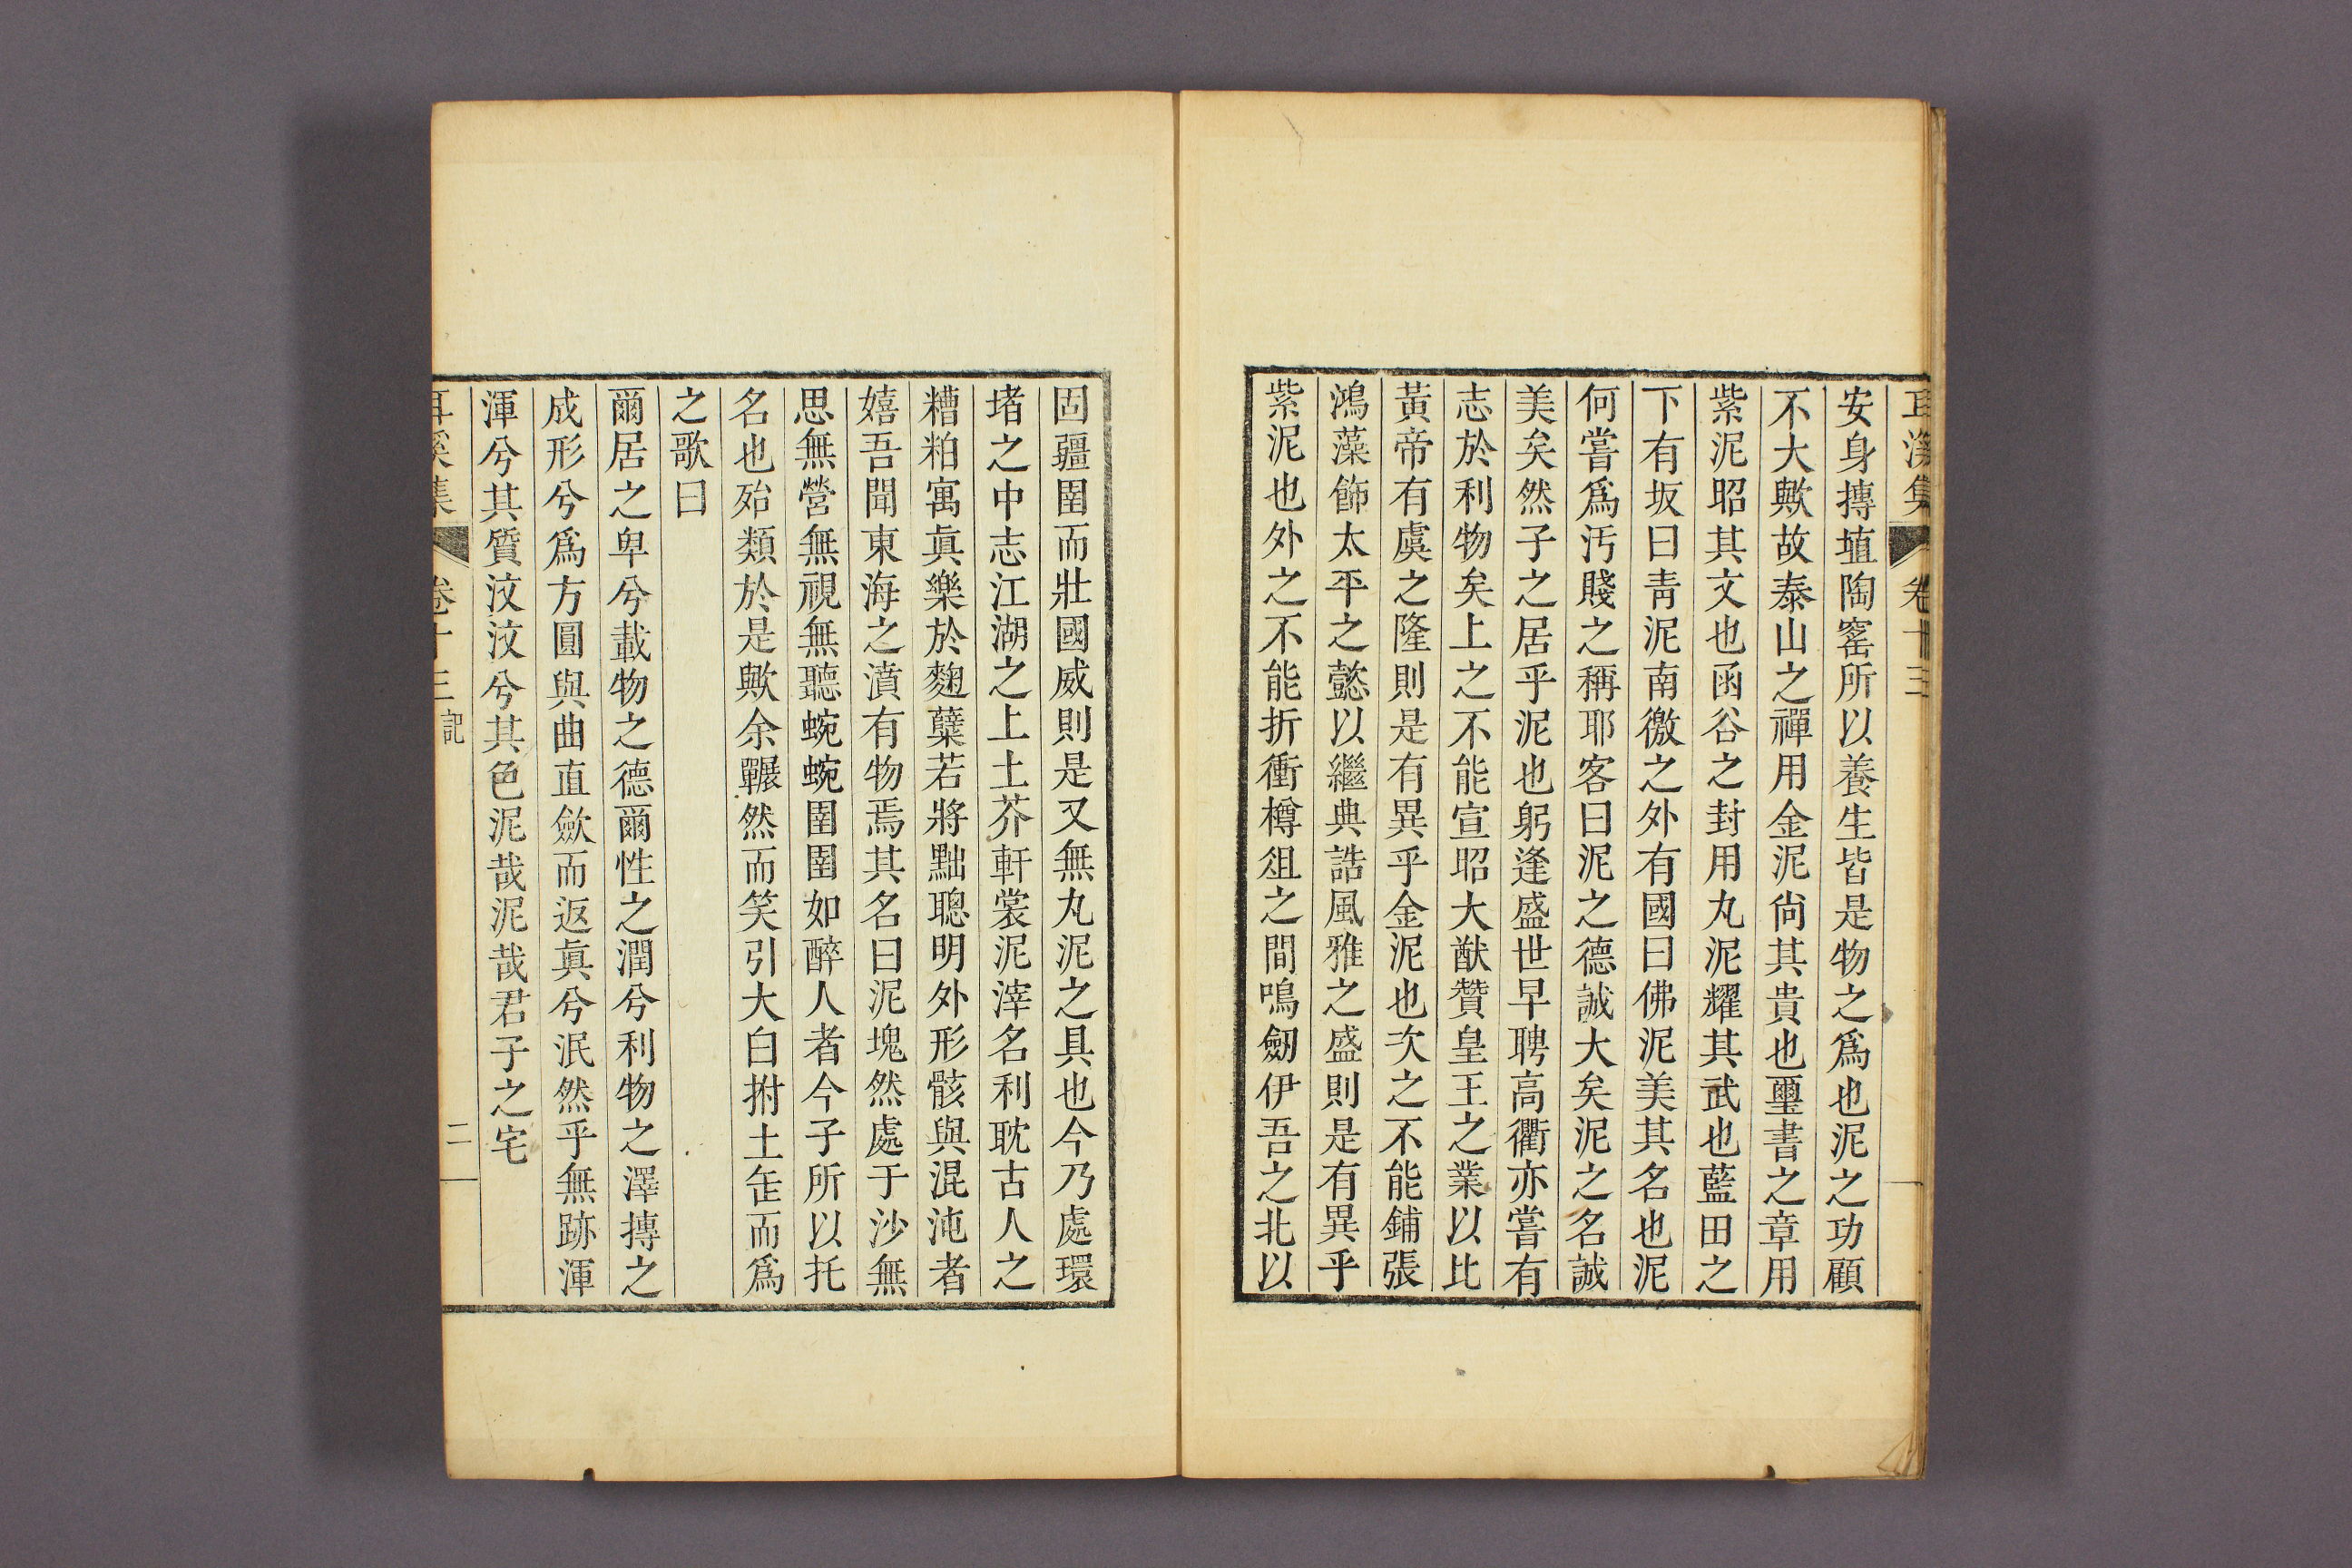 耳溪集 卷十三
安身摶埴陶窰所以養生皆是物之爲也泥之功顧
不大歟故泰山之禪用金泥尙其貴也璽書之章用
紫泥昭其文也函谷之封用丸泥耀其武也藍田之
下有坂曰靑泥南徼之外有國曰佛泥美其名也泥
何嘗爲汚賤之稱耶客曰泥之德誠大矣泥之名誠
美矣然子之居乎泥也躬逢盛世早聘高衢亦嘗有
志於利物矣上之不能宣昭大猷贊皇王之業以比
黃帝有虞之隆則是有異乎金泥也次之不能鋪張
鴻藻飾太平之懿以繼典誥風雅之盛則是有異乎
紫泥也外之不能折衝樽俎之間鳴劒伊吾之北以
固疆圉而壯國威則是又無丸泥之具也今乃處環
堵之中志江湖之上土芥軒裳泥滓名利耽古人之
糟粕寓眞樂於麴糵若將黜聰明外形骸與混沌者
嬉吾聞東海之濆有物焉其名曰泥塊然處于沙無
思無營無視無聽蜿蜿圉圉如醉人者今子所以托
名也殆類於是歟余囅然而笑引大白拊土缶而爲
之歌曰
爾居之卑兮載物之德爾性之潤兮利物之澤摶之
成形兮爲方圓與曲直斂而返眞兮泯然乎無跡渾
渾兮其質汶汶兮其色泥哉泥哉君子之宅
耳溪集 卷十三 記 二